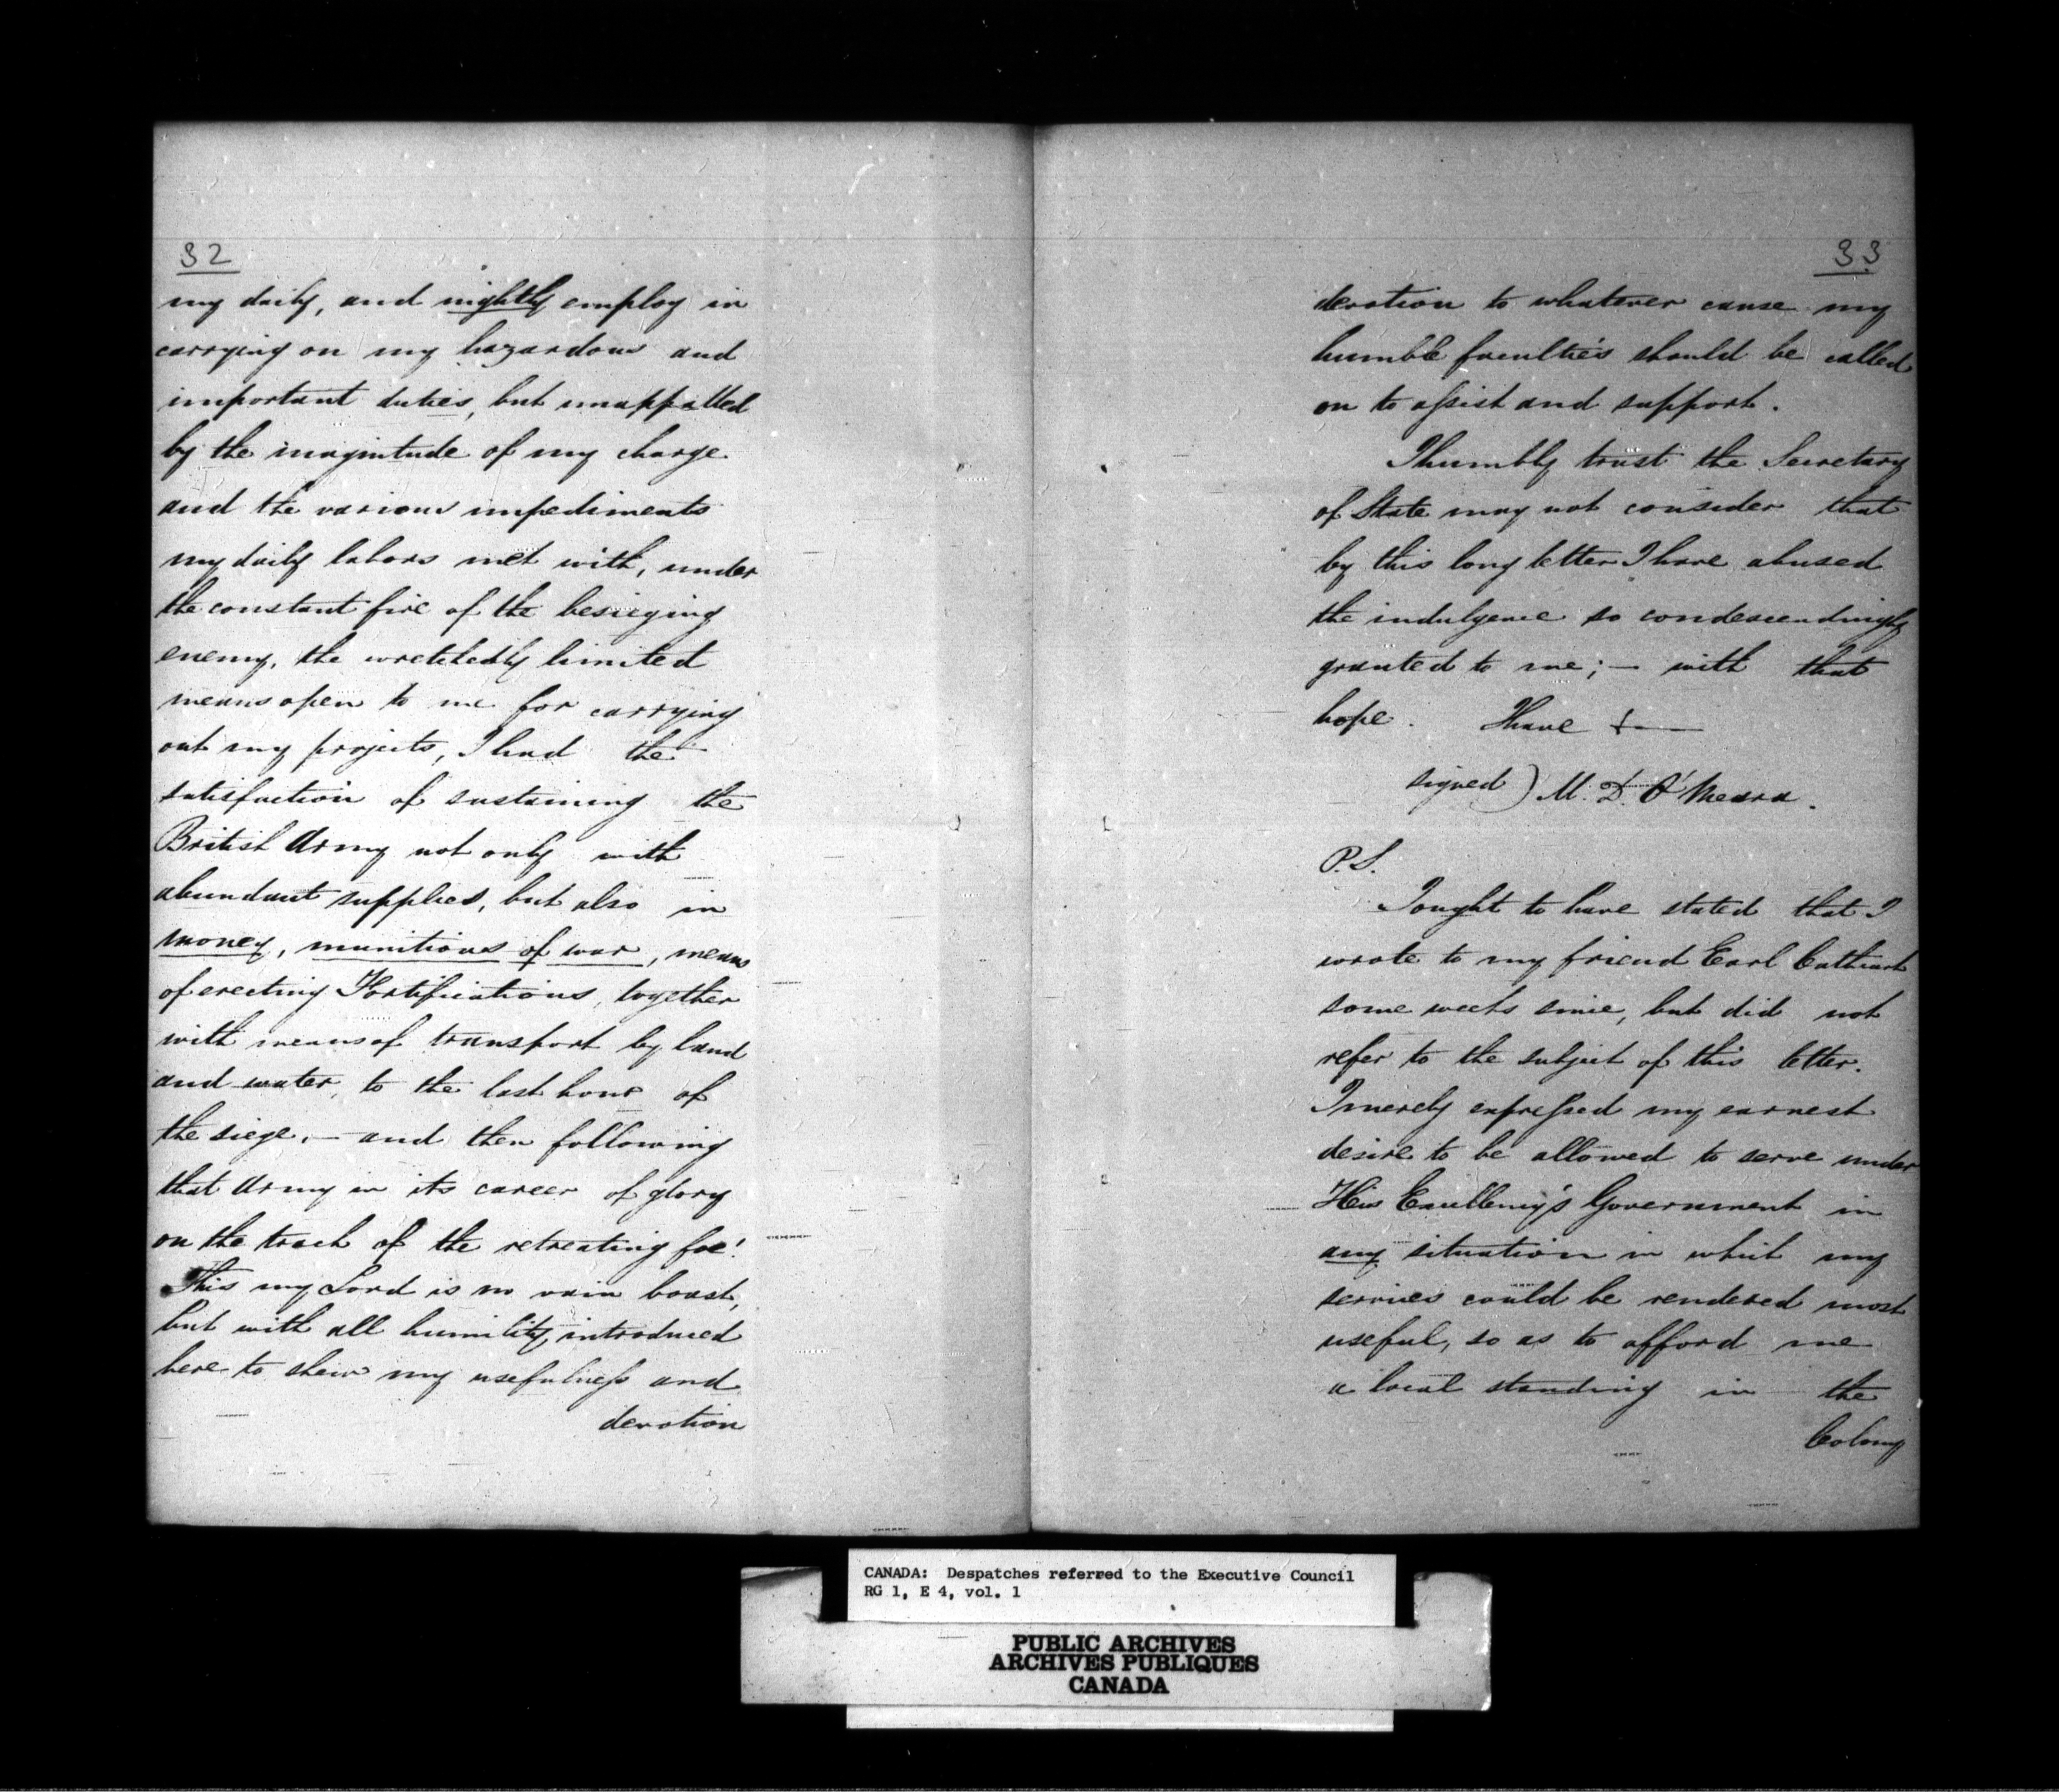 32
my daily, and nightly employ in
carrying on my hazardous and
important duties, but unappalled
by the magnitude of my charge
and the various impediments
my daily labors met with, under
the constant fire of the besieging
enemy, the wretchedly limited
means open to me for carrying
out my projects, I had the
satisfaction of sustaining the
British Army not only with
abundant supplies, but also in
money, munitions of war, means
of erecting Fortifications, together
with means of transport by land
and water, to the last hour of
the siege, — and then following
that Army in its career of glory
on the track of the retreating foe!
This my Lord is no vain boast,
but with all humility, introduced
here to shew my usefulness and
devotion
33
devotion to whatever cause my
humble faculties should be called
on to assist and support.
I humbly trust the Secretary
of State may not consider that
by this long letter I have abused
the indulgence so condescendingly
granted to me; — with that
hope. I have &—
signed) M. D. O'Meara.
P.S.
I ought to have stated that I
wrote to my friend Earl Cathcart
some weeks since, but did not
refer to the subject of this letter.
I merely expressed my earnest
desire to be allowed to serve under
His Excellency's Government in
any situation in which my
services could be rendered most
useful, so as to afford me
a local standing in the
Colony
CANADA: Despatches referred to the Executive Council
RG 1, E 4, vol. 1
PUBLIC ARCHIVES
ARCHIVES PUBLIQUES
CANADA